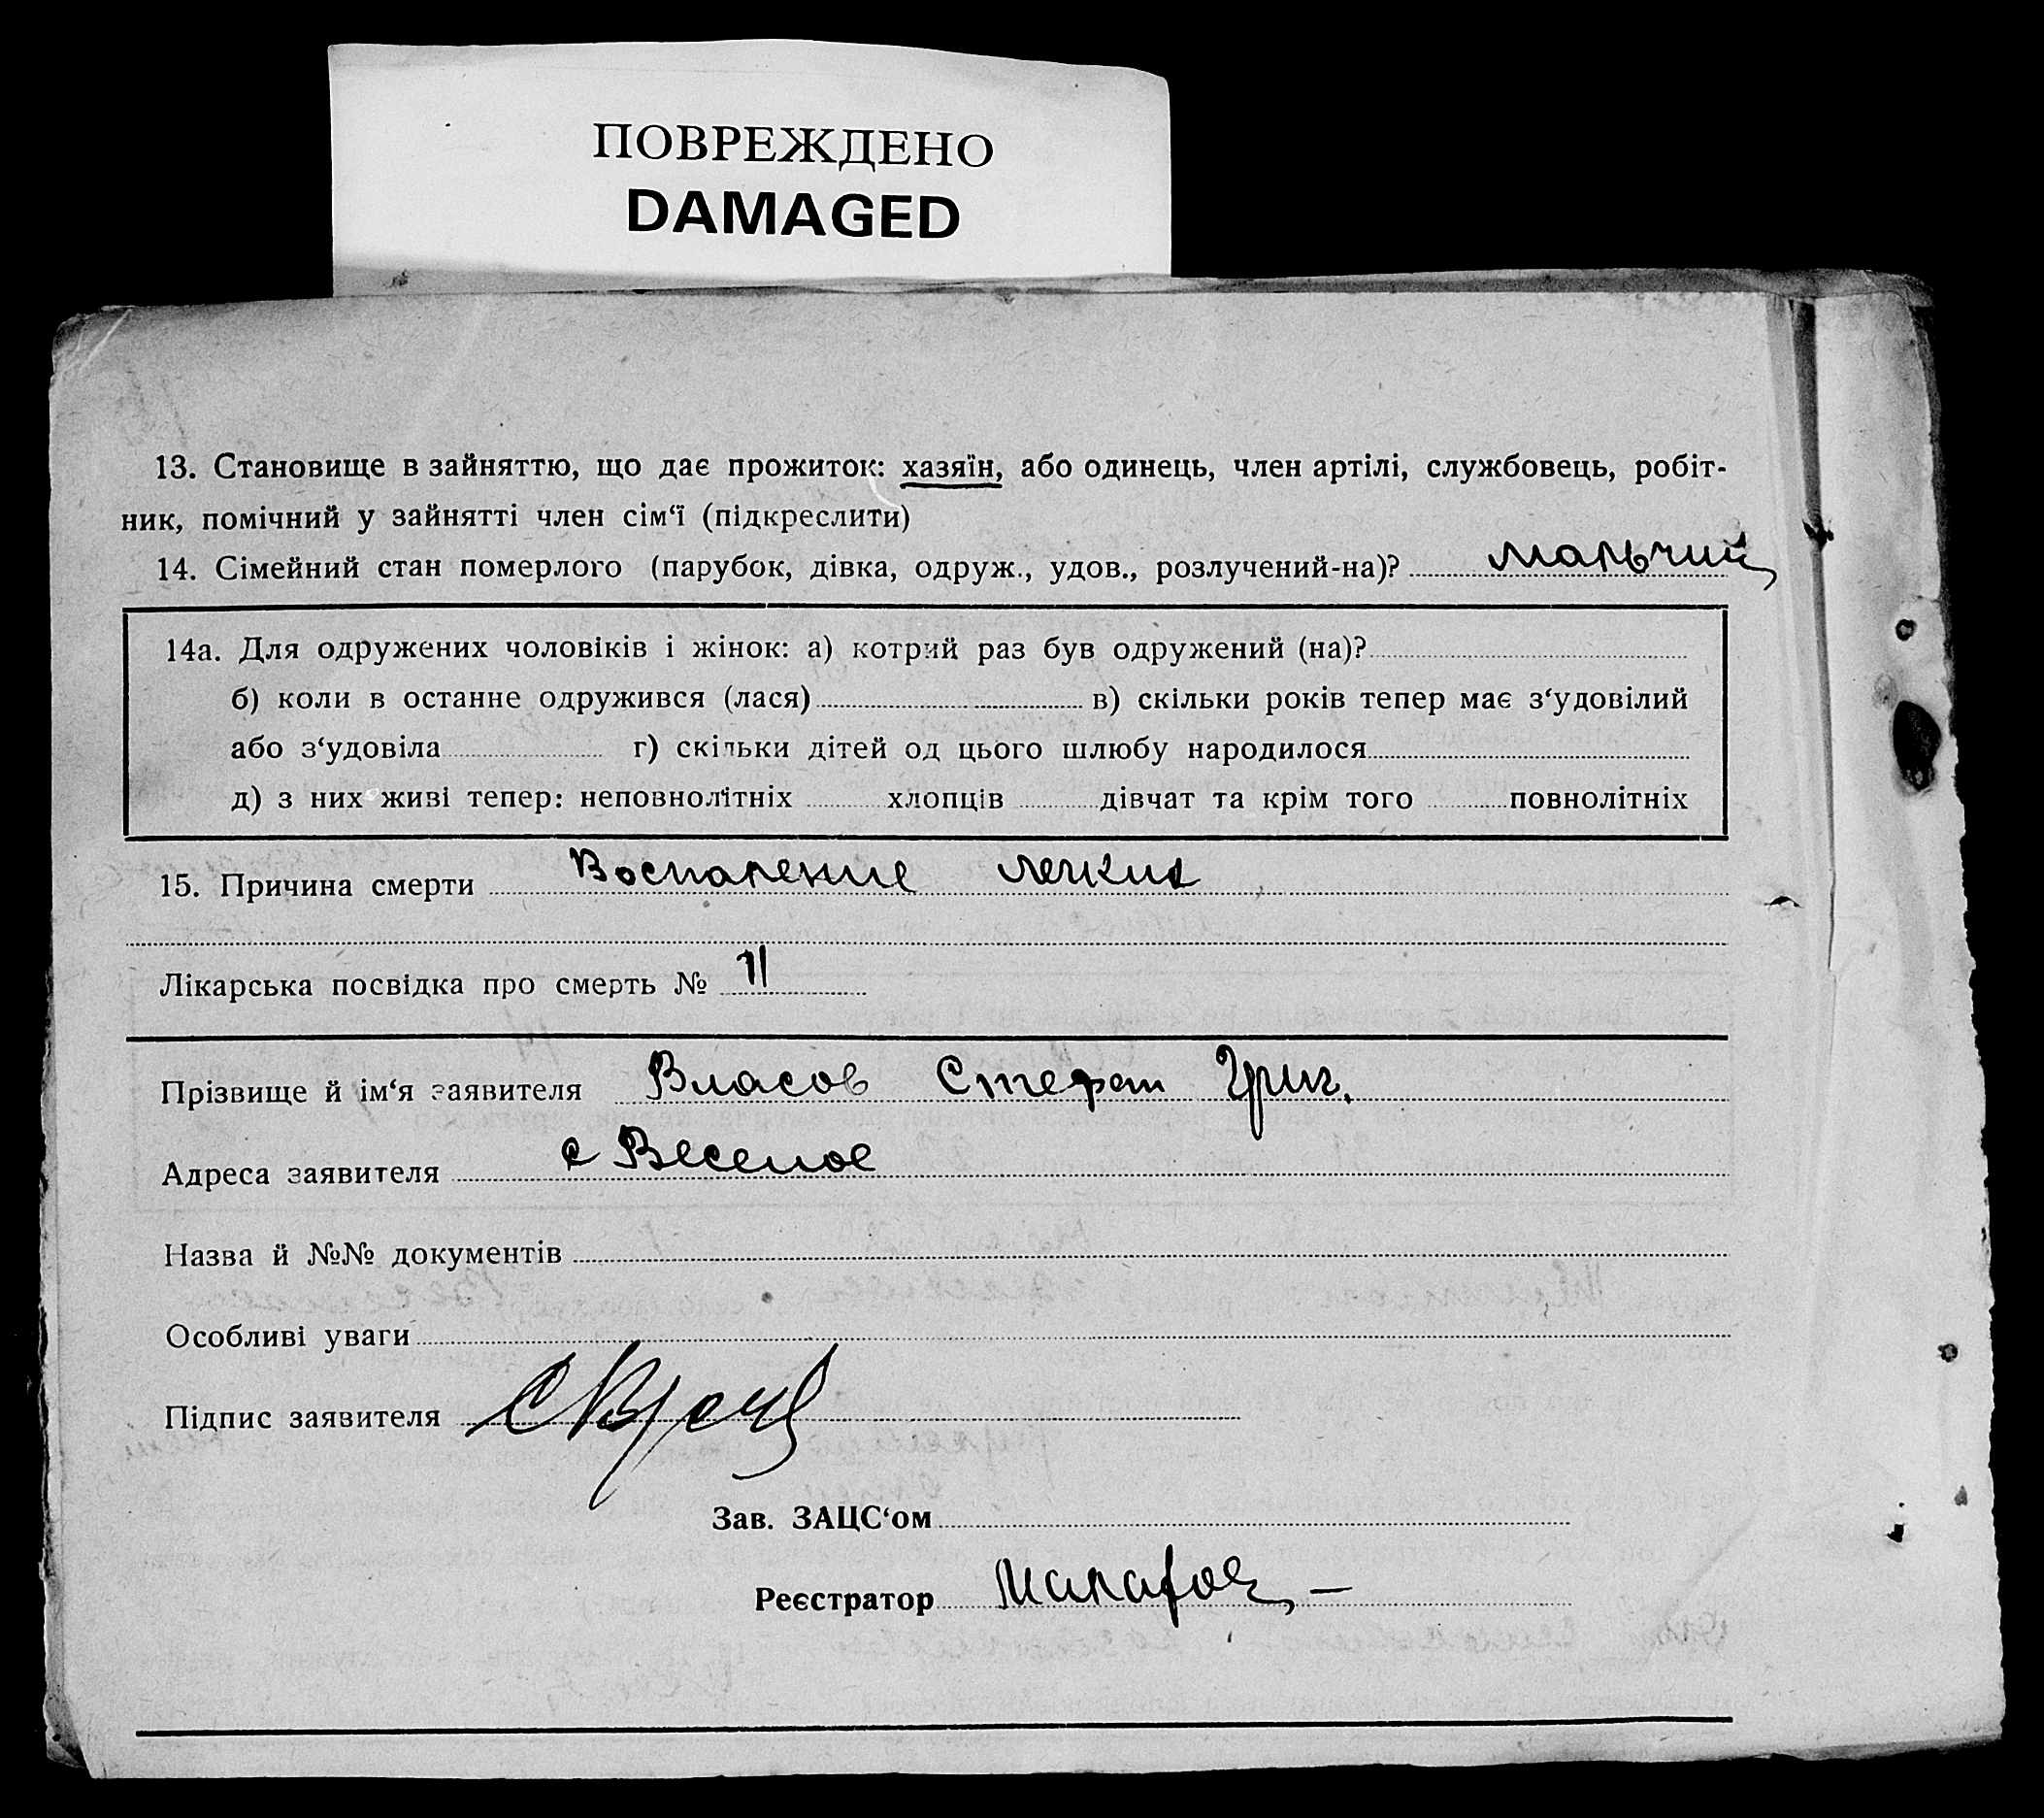 ПОВРЕЖДЕНО
DAMAGED
13. Становище в зайняттю, що дає прожиток: хазяїн, або одинець, член артілі, службовець, робіт-
ник, помічний у зайнятті член сім‘ї (підкреслити)
14. Сімейний стан померлого (парубок, дівка, одруж., удов., розлучений-на)?
14а. Для одружених чоловіків і жінок: а) котрий раз був одружений (на)?
б) коли в останне одружився (лася) в) скільки років тепер має з‘удовілий
або з‘удовіла г) скільки дітей од цього шлюбу народилося
д) з них живі тепер: неповнолітніх хлопців дівчат та крім того повнолітніх
15. Причина смерти Воспаление легких
Лікарська посвідка про смерть № 11
Прізвище й ім‘я заявителя Власов Стефан Григ.
Адреса заявителя с Веселое
Назва й №№ документів
Особливі уваги
Підпис заявителя
Зав. ЗАЦС‘ом
Реєстратор